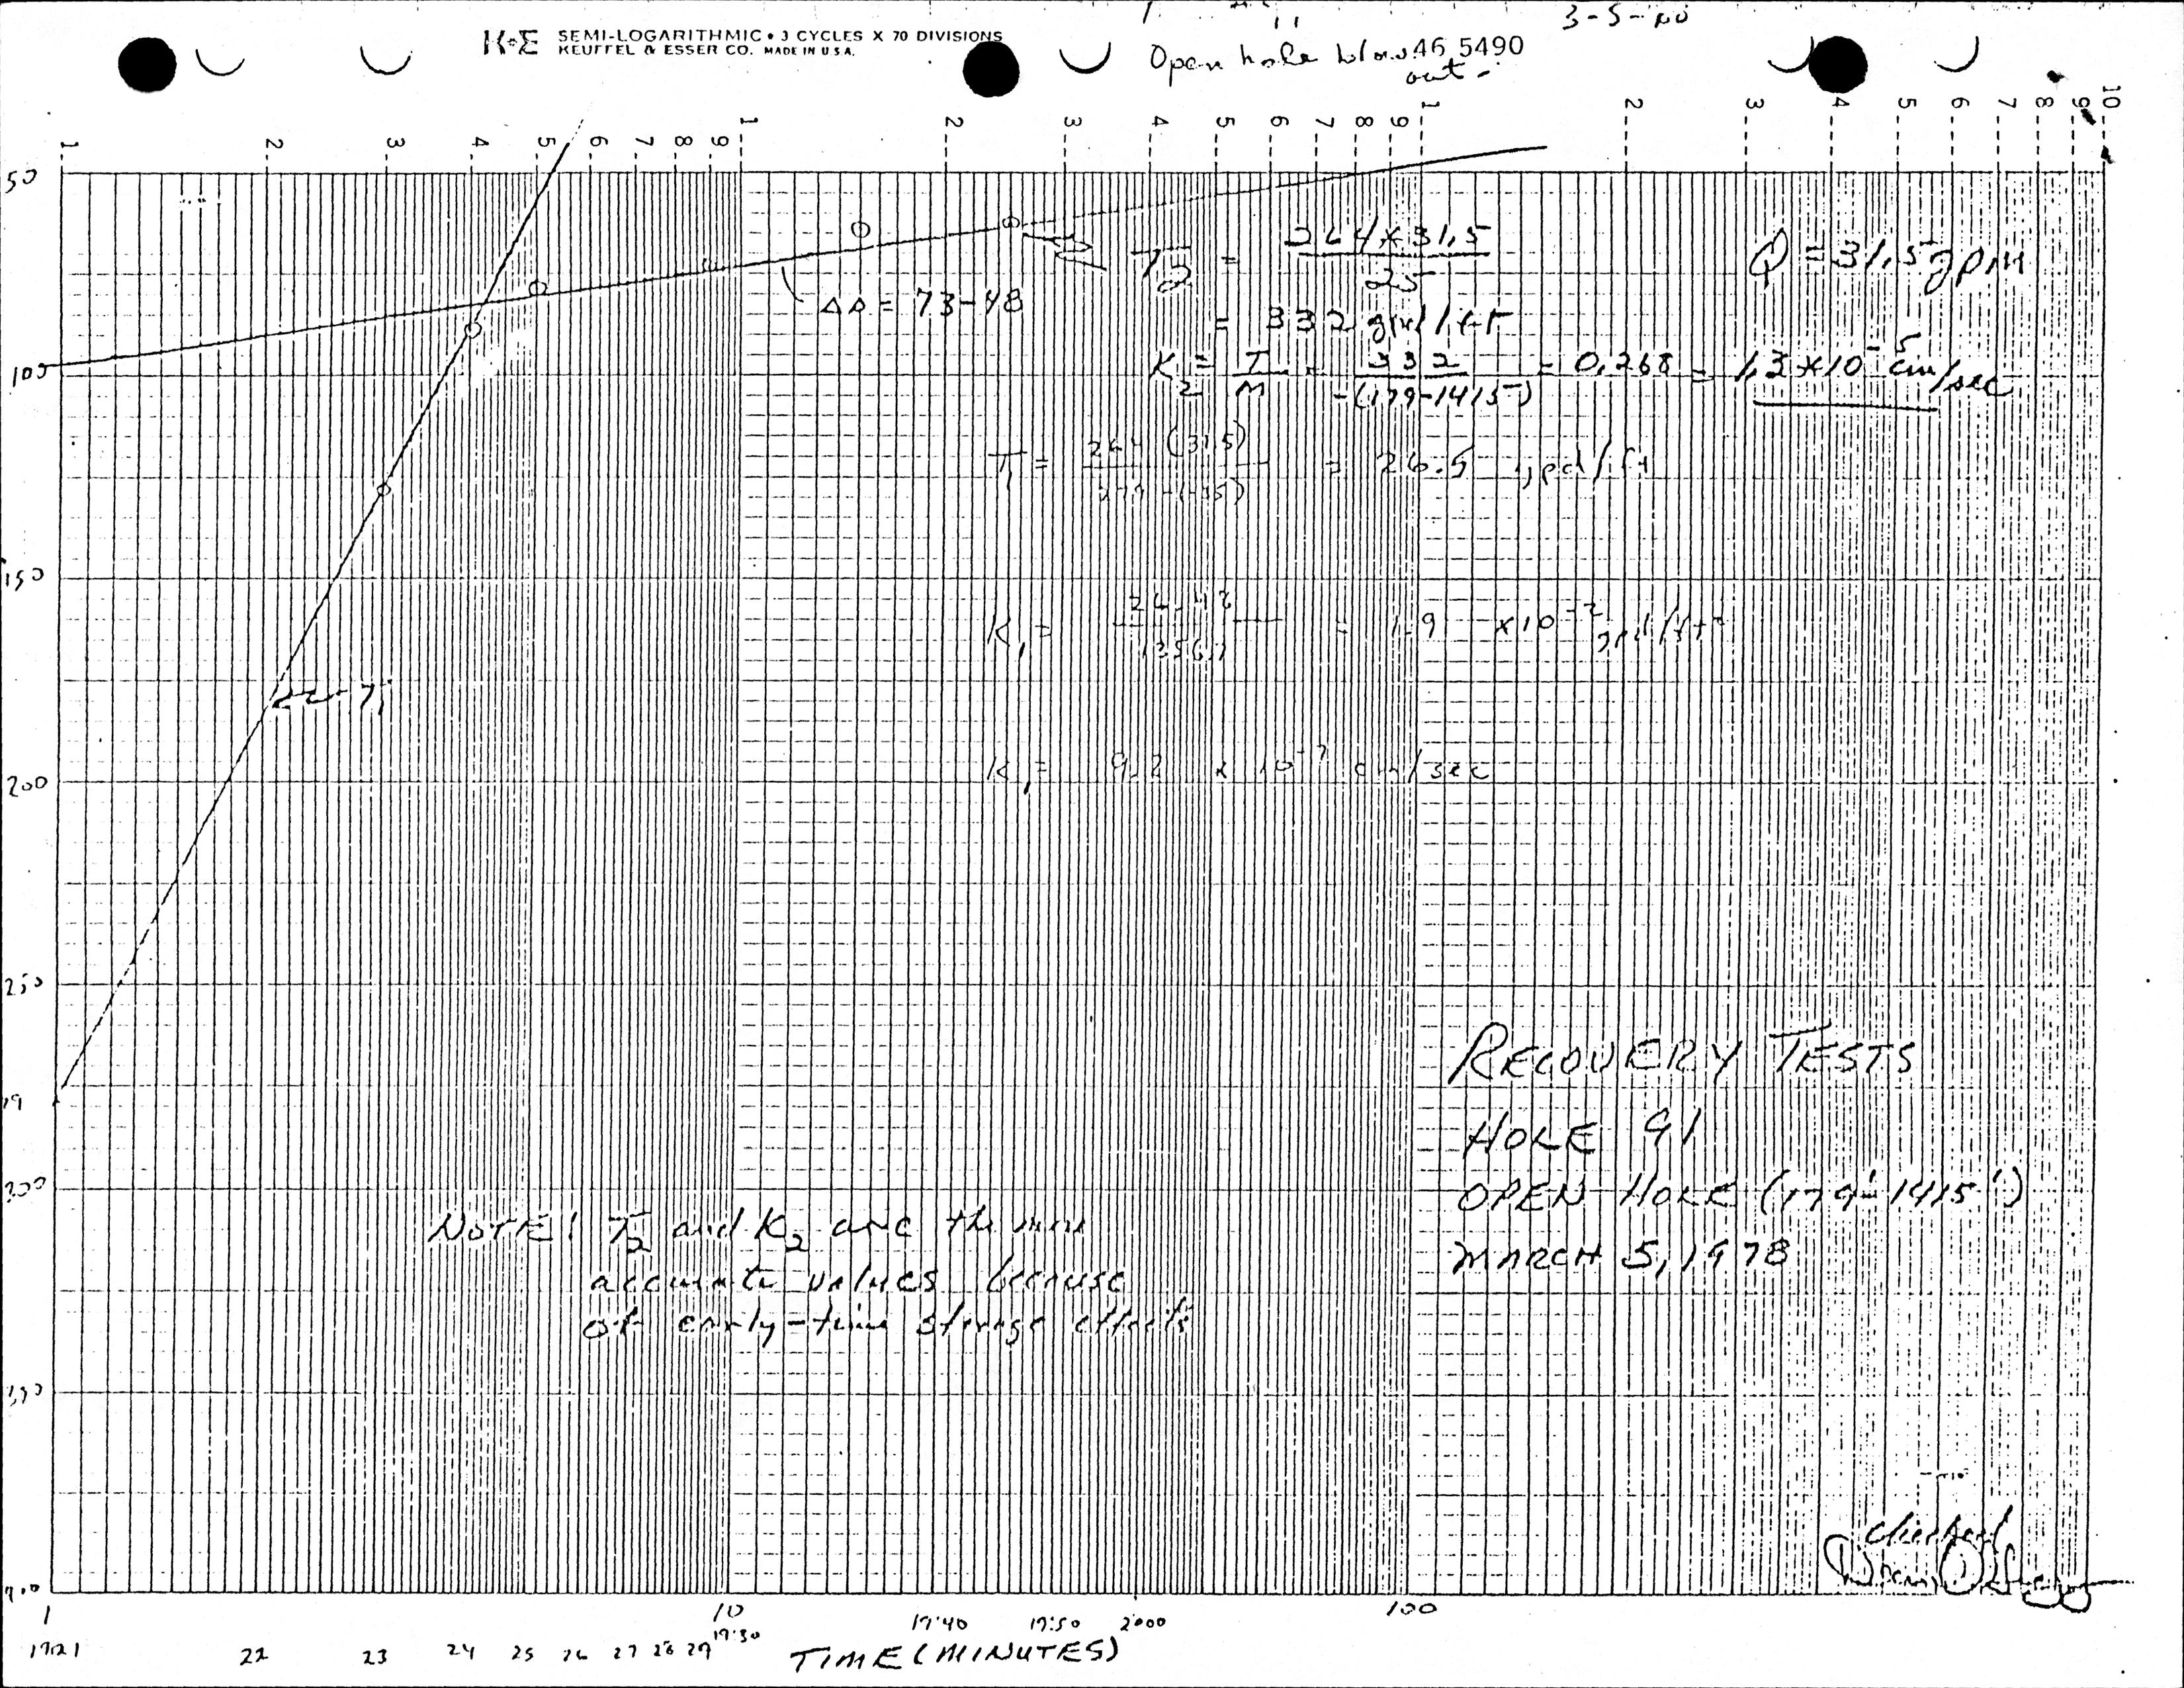 3-5-
K+E SEMI-LOGARITHMIC • 3 CYCLES X 70 DIVISIONS
KEUFFEL & ESSER CO. MADE IN U.S.A.
46 5490
Open hole blow
out -
1 2 3 4 5 6 7 8 9 1 2 3 4 5 6 7 8 9 1 2 3 4 5 6 7 8 9 10
50
100
150
200
250
300
T2 = 264 x 31.5 / 25
= 332 gpd/ft
Q = 31.5 gpm
Δs = 73-48
K2 = T/M = 332 / -(179-1415) = 0.268 = 1.3 x 10^-5 cm/sec
T1 = 264 (31.5) / = 26.5 gpd/ft
K1 = = 1.9 x10^-2 gpd/ft²
T1
K1 = 9.2 x 10^-7 cm/sec
RECOVERY TESTS
HOLE 91
OPEN HOLE (179'-1415')
MARCH 5, 1978
NOTE! T2 and K2 are the more
accurate values because
of early-time storage effects
checked
1 10 100
17:21 22 23 24 25 26 27 28 29 19:30 19:40 19:50 2000
TIME (MINUTES)